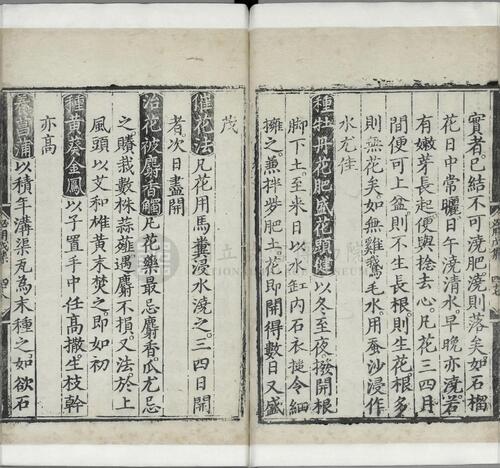 實者已結不可澆肥澆則落矣如石榴
花日中常曬日午澆清水早晚亦澆若
有嫩芽長起便與捻去心凡花三四月
間便可上盆則不生長根則生花根多
則無花矣如無雞鵞毛水用蚕沙浸作
水尤佳
種牡丹花肥盛花顆健以冬至夜撥開根
脚下土至來日以水缸内石衣搥令細
擁之兼拌夢肥土培即開得數日又盛
茂
催花法凡花用馬糞浸水澆之三四日開
者次日盡開
治花被麝香觸凡花藥最忌麝香瓜尤忌
之須栽數株蒜薤遇麝不損又法於上
風頭以艾和雄黄末焚之即如初
種黄葵金鳳以子置手中任高撒生枝幹
亦高
菖蒲以積年溝渠瓦為末種之如欲石